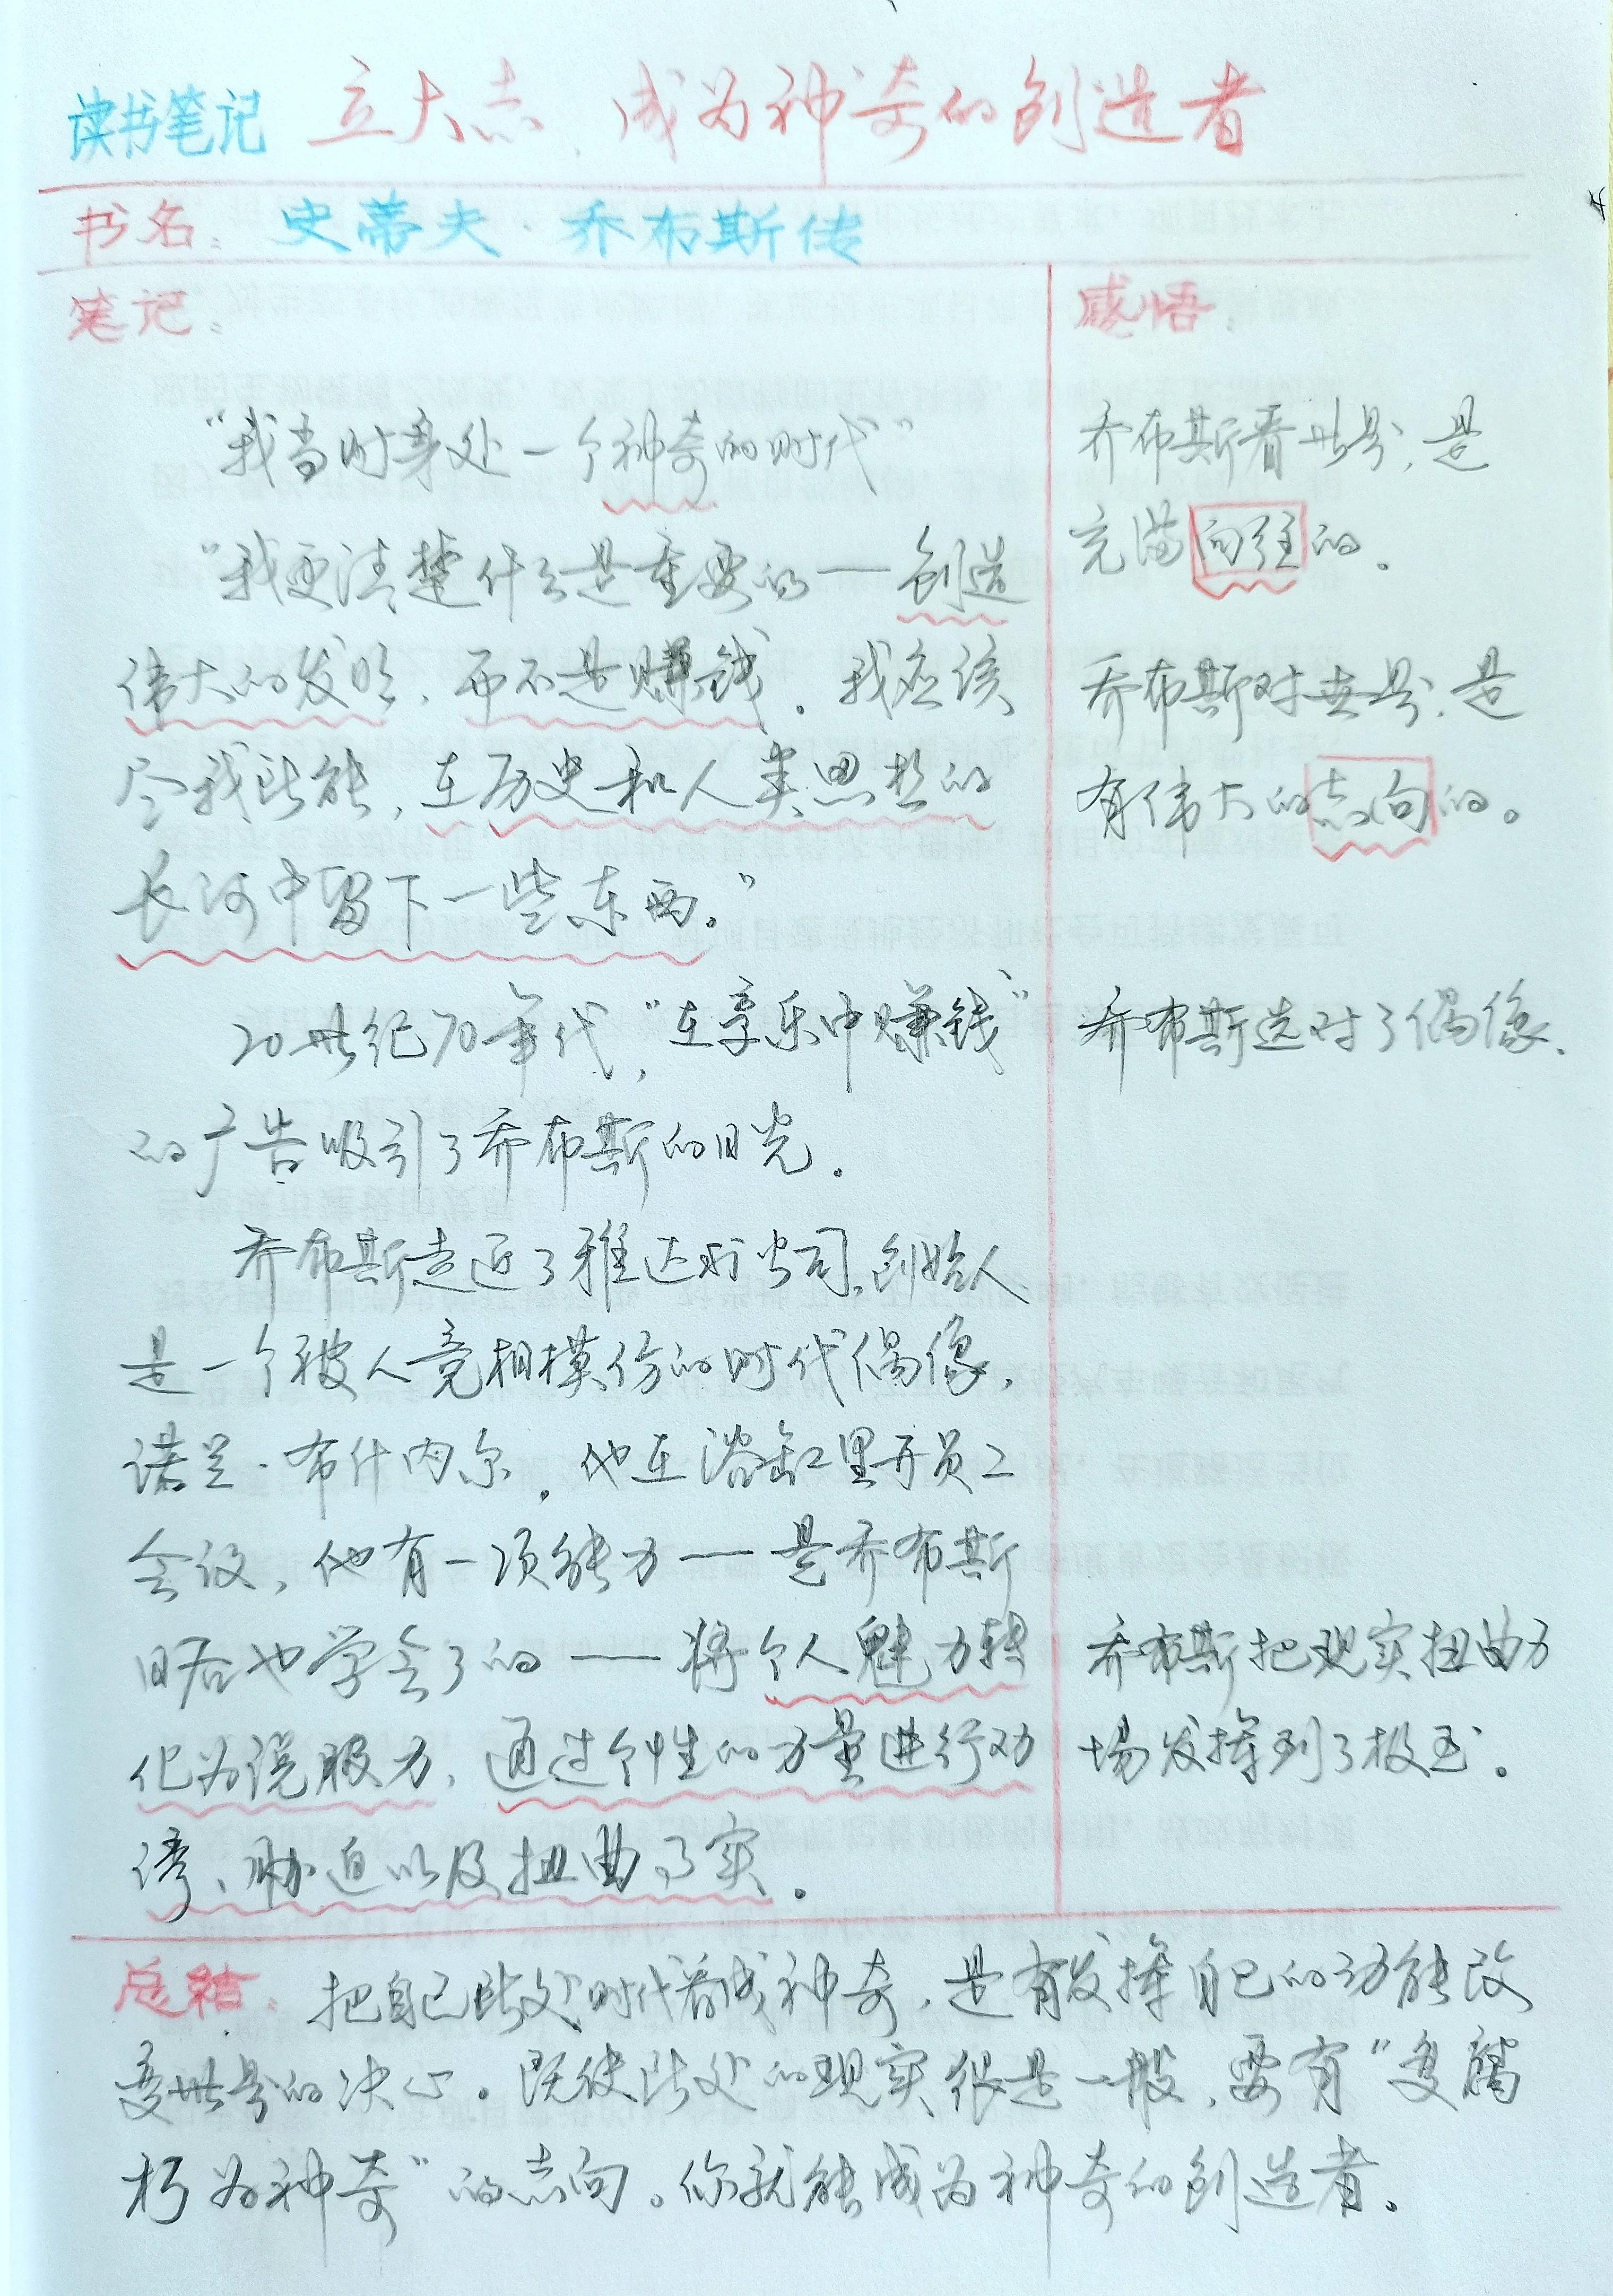 读书笔记 立大志，成为神奇的创造者
书名：史蒂夫·乔布斯传
笔记：
“我当时身处一个神奇的时代”
“我更清楚什么是重要的——创造
伟大的发明，而不是赚钱。我应该
尽我所能，在历史和人类思想的
长河中留下一些东西。”
20世纪70年代，“在享乐中赚钱”
的广告吸引了乔布斯的目光。
乔布斯走近了雅达利公司，创始人
是一个被人竞相模仿的时代偶像，
诺兰·布什内尔。他在浴缸里开员工
会议，他有一项能力——是乔布斯
日后也学会了的——将个人魅力转
化为说服力，通过个性的力量进行劝
诱、胁迫以及扭曲事实。
感悟：
乔布斯看世界，是
充满向往的。
乔布斯对世界，是
有伟大的志向的。
乔布斯选对了偶像，
乔布斯把现实扭曲力
场发挥到了极至。
总结：把自己所处时代看成神奇，是有发挥自己的动能改
变世界的决心。既使所处的现实很是一般，要有“变腐
朽为神奇”的志向。你就能成为神奇的创造者。